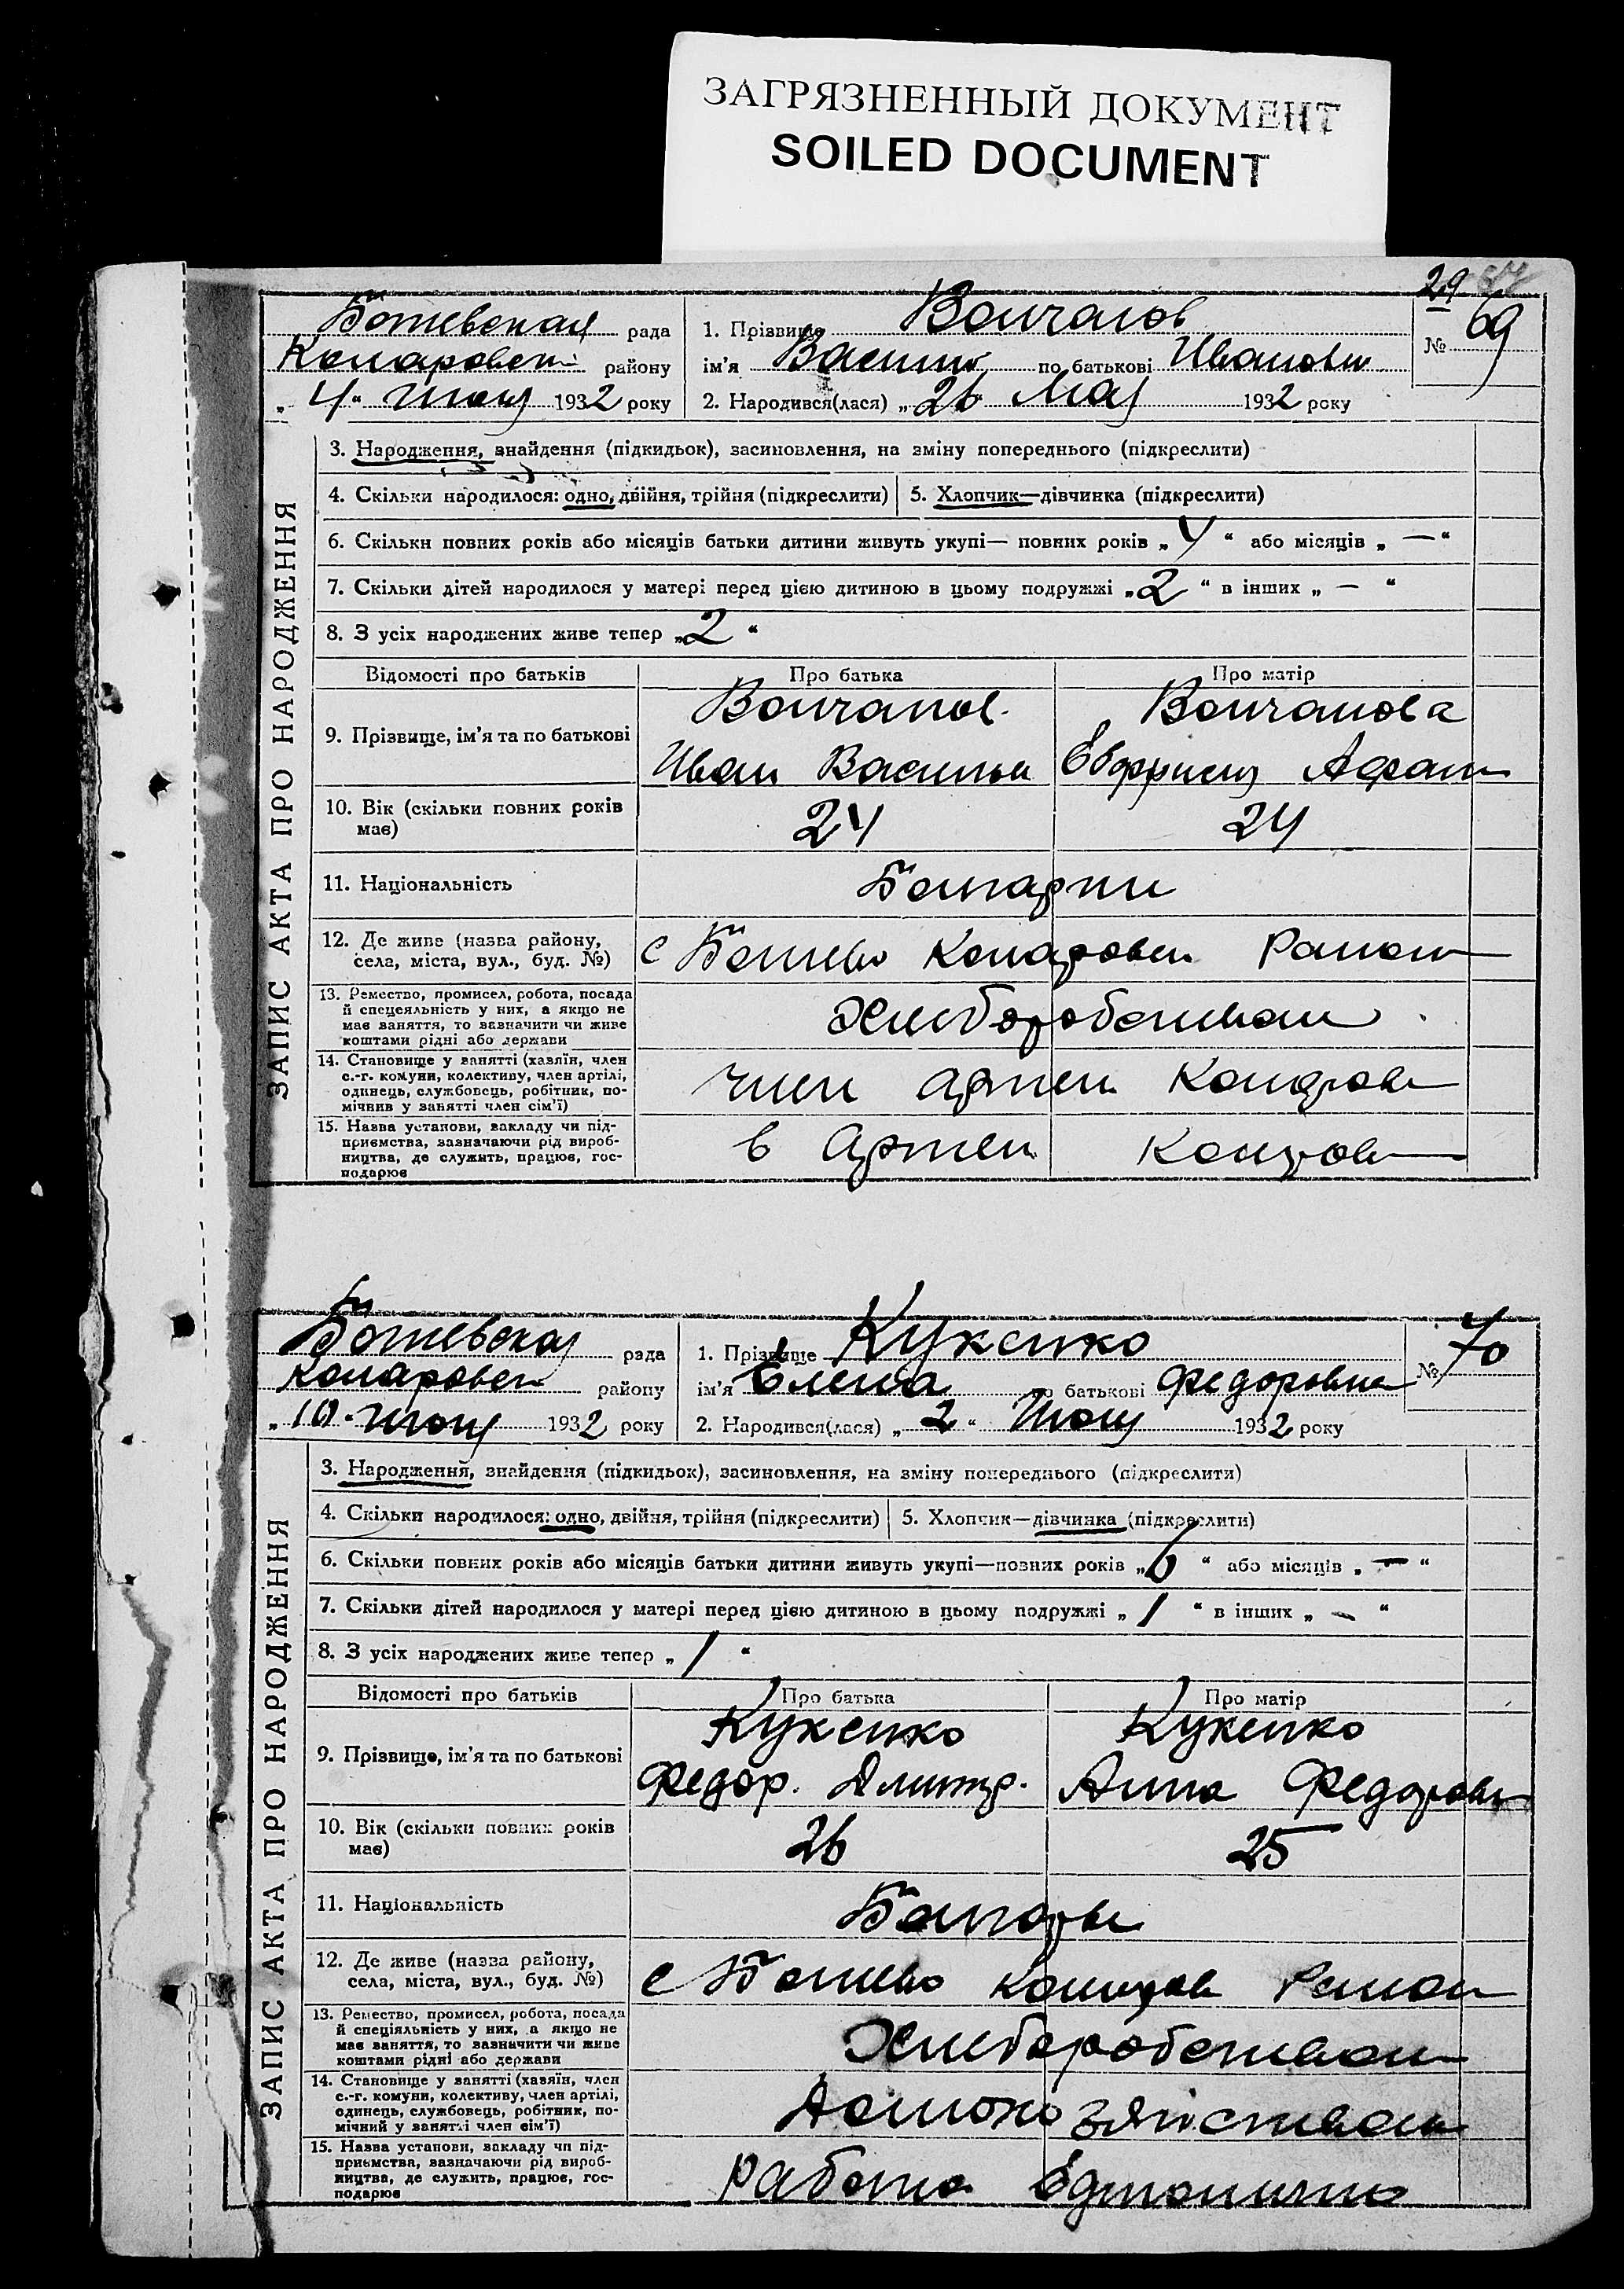 ЗАГРЯЗНЕННЫЙ ДОКУМЕНТ
SOILED DOCUMENT
29
рада
району
„ 4 “ 1932 року
1. Прізвище Волчанов
ім'я Василий по батькові Иванович
2. Народився(лася) „ 26 “ Мая 1932 року
№ 69
ЗАПИС АКТА ПРО НАРОДЖЕННЯ
3. Народження, знайдення (підкидьок), засиновлення, на зміну попереднього (підкреслити)
4. Скільки народилося: одно, двійня, трійня (підкреслити) 5. Хлопчик—дівчинка (підкреслити)
6. Скільки повних років або місяців батьки дитини живуть укупі— повних років „ 4 “ або місяців „ — “
7. Скільки дітей народилося у матері перед цією дитиною в цьому подружжі „ 2 “ в інших „ — “
8. З усіх народжених живе тепер „ 2 “
Відомості про батьків Про батька Про матір
9. Прізвище, ім'я та по батькові
Волчанов Волчанова
Иван
10. Вік (скільки повних років має)
24 24
11. Національність
12. Де живе (назва району, села, міста, вул., буд. №)
13. Ремество, промисел, робота, посада й спецеяльність у них, а якщо не має заняття, то зазначити чи живе коштами рідні або держави
14. Становище у занятті (хазяїн, член с.-г. комуни, колективу, член артілі, одинець, службовець, робітник, помічник у занятті член сім'ї)
член
15. Назва установи, закладу чи підприємства, зазначаючи рід виробництва, де служить, працює, господарює
в
рада
району
„ 10 “ 1932 року
1. Прізвище Кукенко
ім'я Елена по батькові Федоровна
2. Народився(лася) „ 2 “ 1932 року
№ 70
ЗАПИС АКТА ПРО НАРОДЖЕННЯ
3. Народження, знайдення (підкидьок), засиновлення, на зміну попереднього (підкреслити)
4. Скільки народилося: одно, двійня, трійня (підкреслити) 5. Хлопчик—дівчинка (підкреслити)
6. Скільки повних років або місяців батьки дитини живуть укупі—повних років „ 6 “ або місяців „ — “
7. Скільки дітей народилося у матері перед цією дитиною в цьому подружжі „ 1 “ в інших „ — “
8. З усіх народжених живе тепер „ 1 “
Відомості про батьків Про батька Про матір
9. Прізвище, ім'я та по батькові
Кукенко Кукенко
Федор. Дмитр. Анна
10. Вік (скільки повних років має)
26 25
11. Національність
12. Де живе (назва району, села, міста, вул., буд. №)
13. Ремество, промисел, робота, посада й спеціяльність у них, а якщо не має заняття, то зазначити чи живе коштами рідні або держави
14. Становище у занятті (хазяїн, член с.-г. комуни, колективу, член артілі, одинець, службовець, робітник, помічний у занятті член сім'ї)
15. Назва установи, закладу чи підприємства, зазначаючи рід виробництва, де служить, працює, господарює